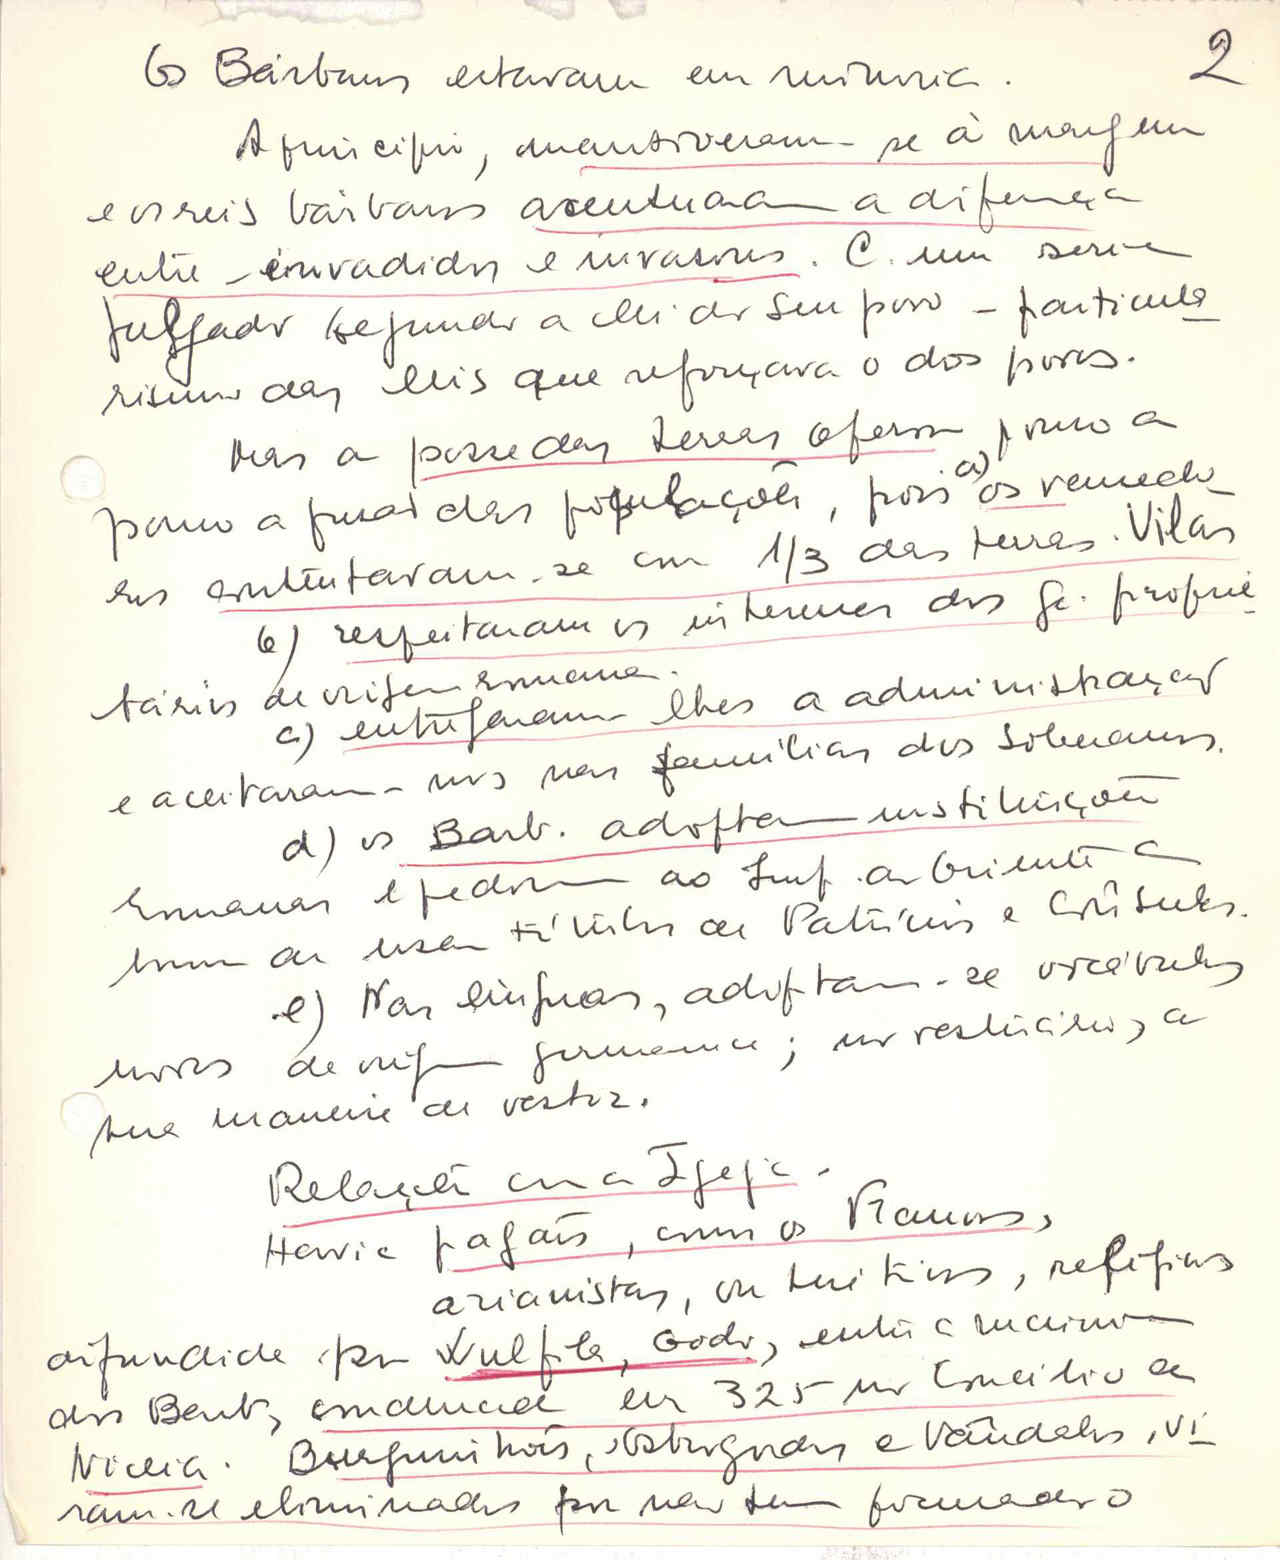 2
Os Bárbaros estavam em minoria.
A princípio, mantiveram-se à margem
e os reis bárbaros acentuam a diferença
entre invadidos e invasores. C. um seria
julgado segundo a lei do seu povo - particula
rismo das leis que reforçava o dos povos.
Mas a posse das terras operou pouco a
pouco a fusão das populações, pois a) os vencedo
res contentaram-se com 1/3 das terras. Vilas
b) respeitaram os interesses dos gr. proprie
tários de origem romana.
c) entregaram-lhes a administração
e aceitaram-nos nas famílias dos soberanos.
d) os Barb. adoptam instituições
romanas e pedem ao Imp. do Oriente a
honra de usar títulos de Patrícios e Cônsules.
e) Nas línguas, adoptam-se vocábulos
novos de origem germânica; no vestuário, a
sua maneira de vestir.
Relações com a Igreja.
Havia pagãos, como os Francos,
arianistas, religião
difundida por Wulfila, Godo, entre a maioria
dos Barb, condenada em 325 no Concílio de
Niceia. Burgúnhões, Ostrogodos e Vândalos, vi
ram-se eliminados por não terem formado o